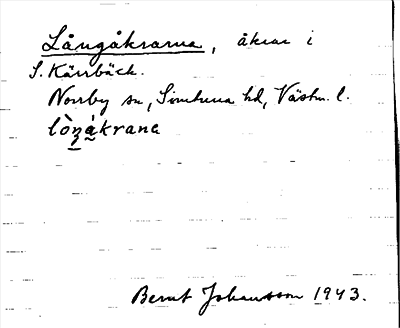 Långåkrarna, åkrar i
S. Kärrbäck.
Norrby sn, Simtuna hd, Västm. l.
lòŋákrana
Bernt Johansson 1943.